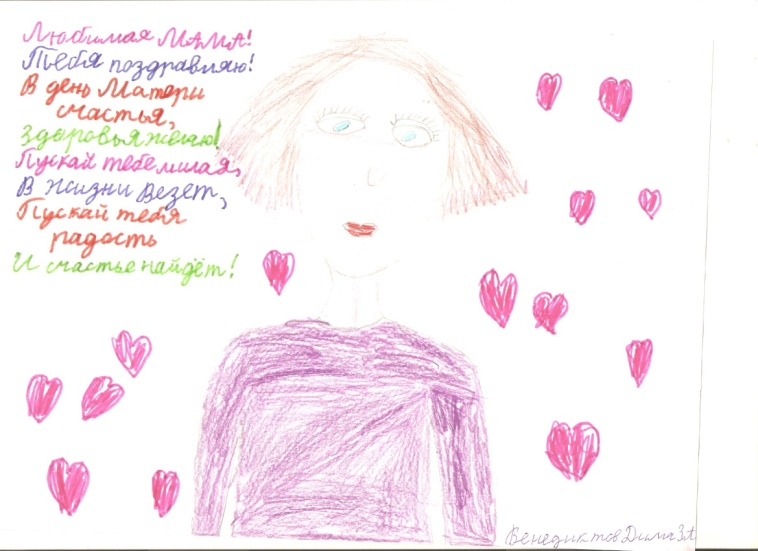 Любимая МАМА!
Тебя поздравляю!
В день Матери
счастья,
Здоровья желаю!
Пускай тебе милая,
В жизни везет,
Пускай тебя
радость
И счастье найдёт!
Венедиктов Дима 3А